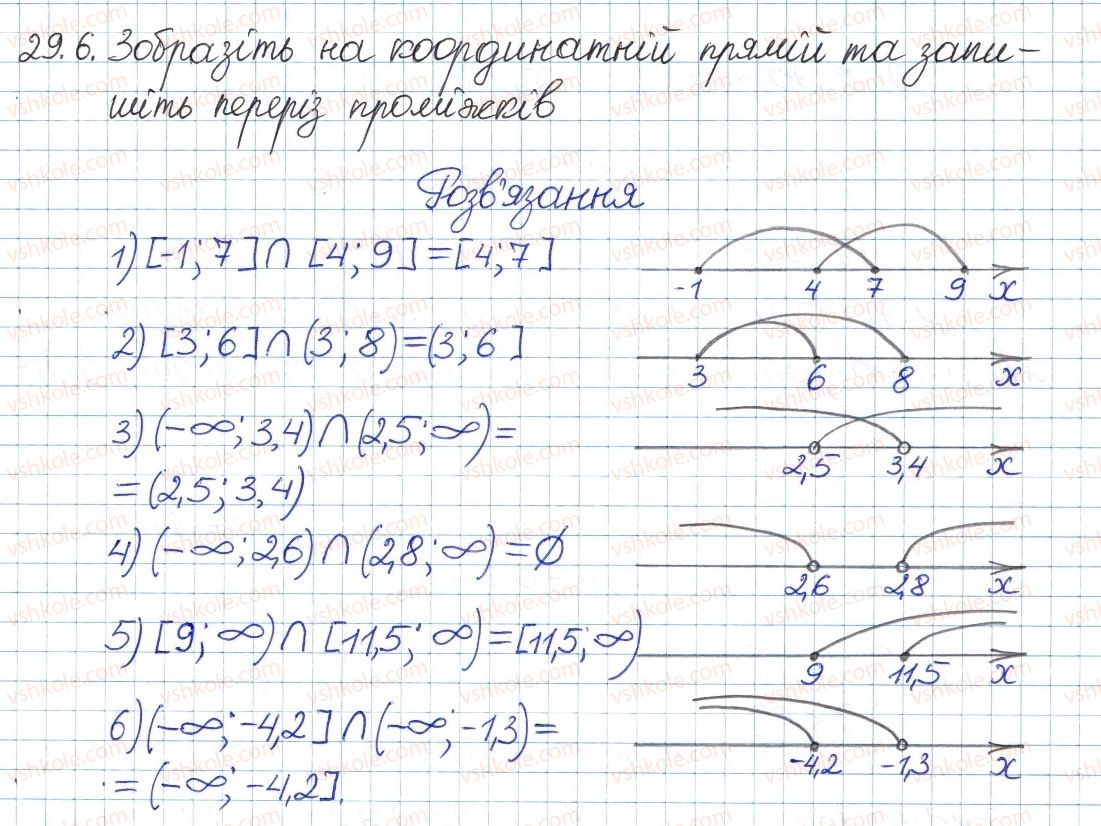 29.6. Зобразіть на координатній прямій та запи-
шіть переріз проміжків
Розв'язання
1) [-1; 7] ∩ [4; 9] = [4; 7]
-1 4 7 9 x
2) [3; 6] ∩ (3; 8) = (3; 6]
3 6 8 x
3) (-∞; 3,4) ∩ (2,5; ∞) =
= (2,5; 3,4)
2,5 3,4 x
4) (-∞; 2,6) ∩ (2,8; ∞) = ∅
2,6 2,8 x
5) [9; ∞) ∩ [11,5; ∞) = [11,5; ∞)
9 11,5 x
6) (-∞; -4,2] ∩ (-∞; -1,3) =
= (-∞; -4,2].
-4,2 -1,3 x
vshkole.com